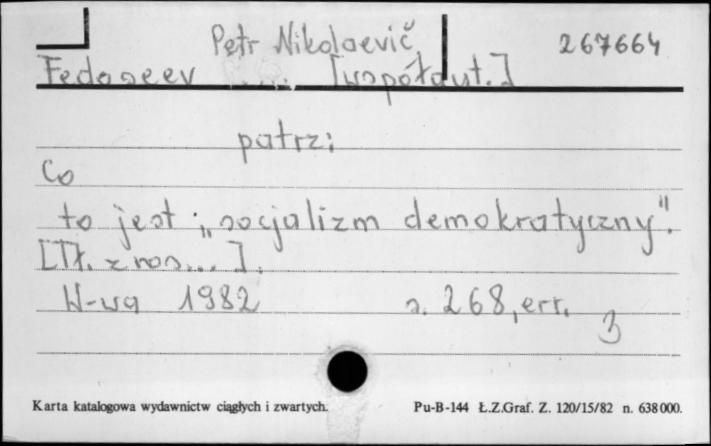 Petr Nikolaevič 267664
Fedoseev [współaut.]
patrz:
Co
to jest „socjalizm demokratyczny".
[Tł. z ros... ].
W-wa 1982 s. 268, err.
3
Karta katalogowa wydawnictw ciągłych i zwartych. Pu-B-144 Ł.Z.Graf. Z. 120/15/82 n. 638000.